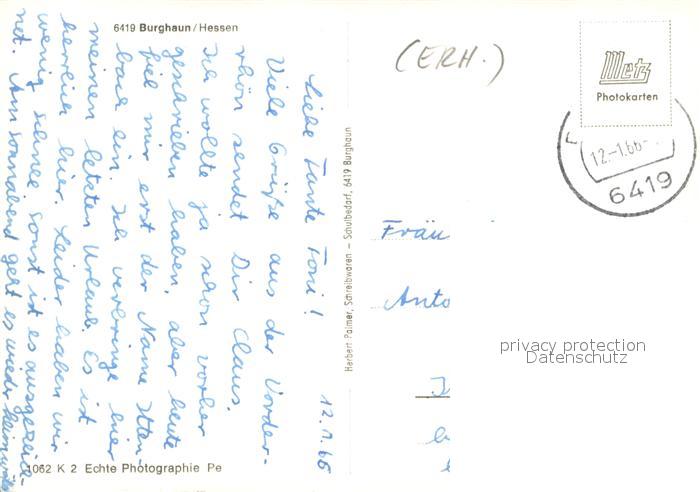 6419 Burghaun/Hessen
12.1.66
Liebe Tante Toni!
Viele Grüße aus der Vorder-
rhön sendet Dir Claus.
Ich wollte ja schon vorher
geschrieben haben, aber heute
fiel mir erst der Name Itten-
bach ein. Ich verbringe hier
meinen letzten Urlaub. Es ist
herrlich hier. Leider haben wir
wenig Schnee sonst ist es ausgezeich-
net. Am Sonnabend geht es wieder heimwärts
1062 K 2 Echte Photographie Pe
Herbert Palmer, Schreibwaren — Schulbedarf, 6419 Burghaun
(ERH.)
Metz
Photokarten
12.-1.66
6419
Fräu
Anto
privacy protection
Datenschutz